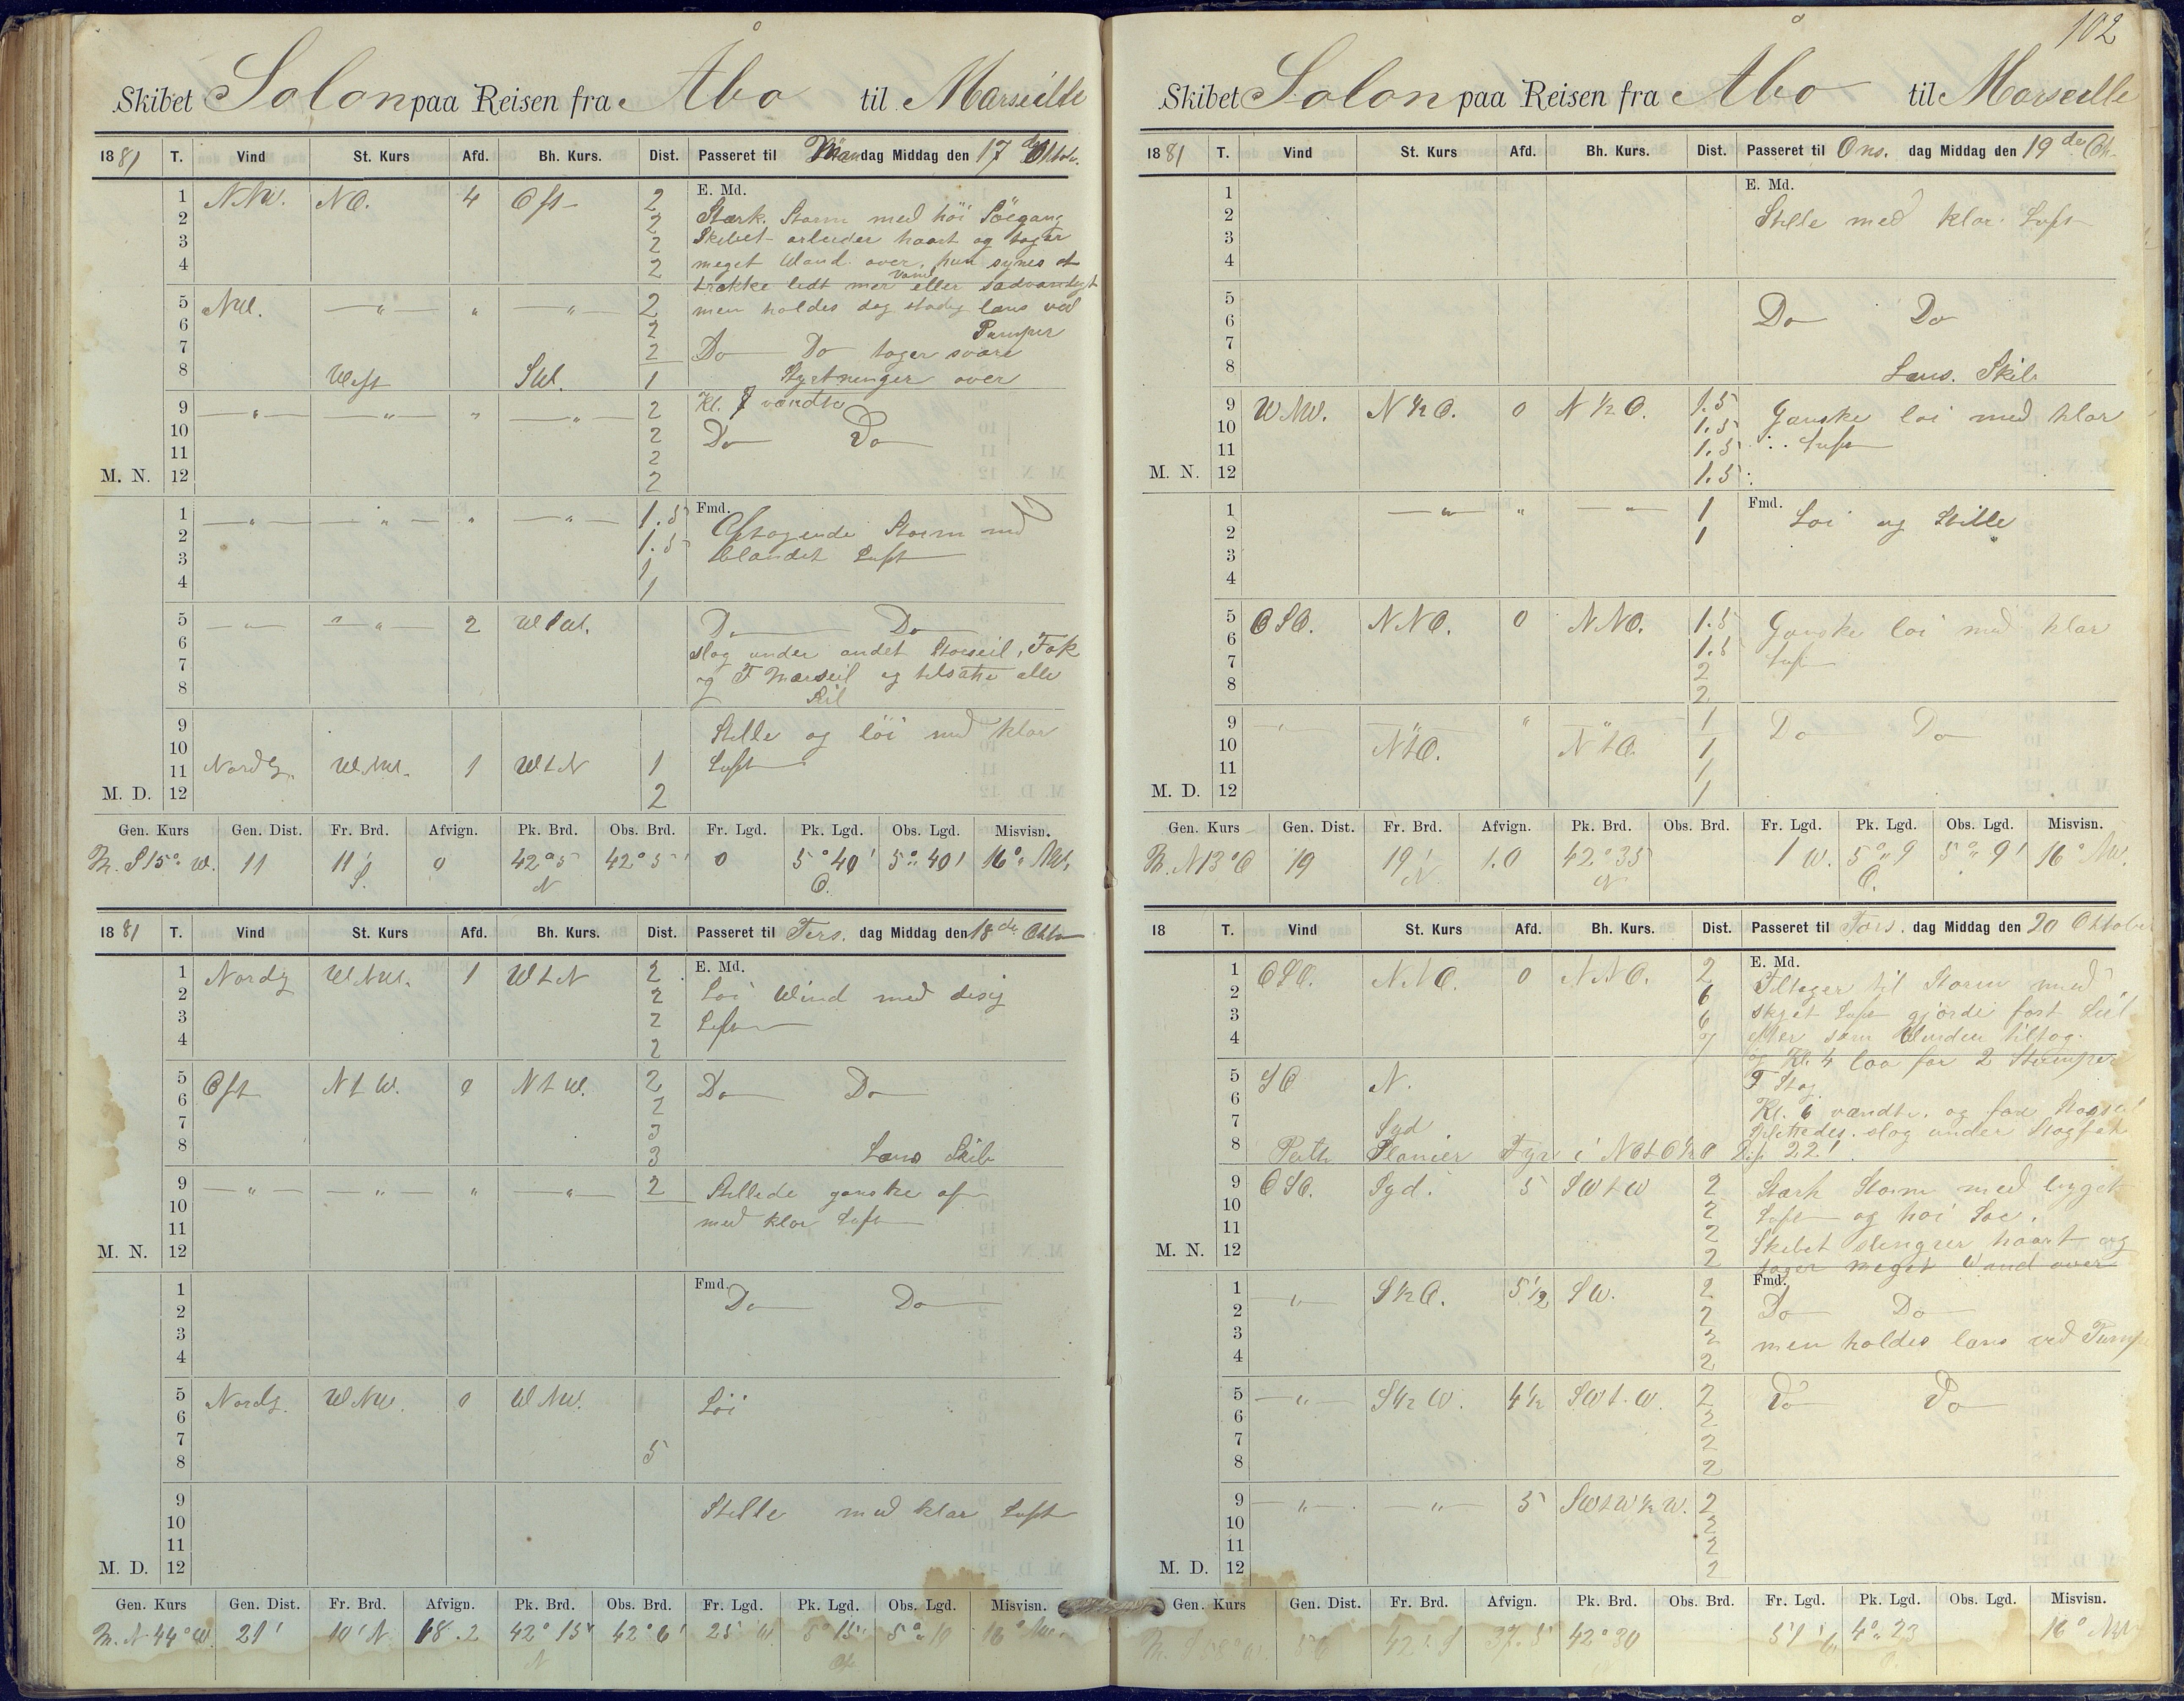 Skibet Solon paa Reisen fra Åbo til Marseille
1881 T. Vind St. Kurs Afd. Bh. Kurs. Dist. Passeret til Mandag Middag den 17 de Oktob.
1 NNW. NO. 4 Ost 2 E. Md.
2 2 Stærk Storm med höi Söegang
3 2 Skibet arbeider haart og tager
4 2 meget Wand over, hun synes at
trække lidt mer Vand eller sadvanligt
5 NW. " " " 2 men holdes dog stadig læns ved
6 2 Pumper
7 2 Do Do tager svære
8 West SW. 1 Styrtninger over
9 " " " " 2 Kl. 8 vændte
10 2 Do Do
11 2
M. N. 12 2
1 " " " " 1.5 Fmd.
2 1.5 Aftagende Storm med
3 1 blandet Luft
4 1
5 " " 2 WSW. Do Do
6 slog under andet Storseil, Fok
7 og F Mærseil og tilsatte alle
8 Seil
9 Stille og löi med klar
10 Luft
11 Nordlg. WNW. 1 WtN 1
M. D. 12 2
Gen. Kurs Gen. Dist. Fr. Brd. Afvign. Pk. Brd. Obs. Brd. Fr. Lgd. Pk. Lgd. Obs. Lgd. Misvisn.
M. S15° W. 11 11' S. 0 42° 5 N 42° 5' 0 5° 40' O. 5° 40' 16° NW.
1881 T. Vind St. Kurs Afd. Bh. Kurs. Dist. Passeret til Tirs. dag Middag den 18 de Oktb
1 Nordlg WNW. 1 WtN 2 E. Md.
2 2 Loi Wind med disig
3 2 Luft
4 2
5 Ost NtW. 0 NtW. 2 Do Do
6 2
7 3
8 3 Læns Skib
9 " " " " 2 Stillede ganske af
10 med klar Luft
11
M. N. 12
1 Fmd. Do Do
2
3
4
5 Nordlg. WNW. 0 WNW. Löi
6
7 5
8
9 Stille med klar Luft
10
11
M. D. 12
Gen. Kurs Gen. Dist. Fr. Brd. Afvign. Pk. Brd. Obs. Brd. Fr. Lgd. Pk. Lgd. Obs. Lgd. Misvisn.
M. N 44° W. 21' 10' N 18.2 42° 15' N 42° 6' 25 W. 5° 15' 5° 10 16° NW.
102
Skibet Solon paa Reisen fra Åbo til Marseille
1881 T. Vind St. Kurs Afd. Bh. Kurs. Dist. Passeret til Ons. dag Middag den 19 de Okt
1 E. Md.
2 Stille med klar Luft
3
4
5
6 Do Do
7
8 Læns. Skib
9 WNW. N ½ O. 0 N ½ O. 1.5 Ganske loi med klar
10 1.5 Luft
11 1.5
M. N. 12 1.5
1 " " " 1 Fmd. Loi og Stille
2 1
3
4
5 OSO. NNO. 0 NNO. 1.5 Ganske loi med klar
6 1.5 Luft
7 2
8 2
9 " " " " 1 Do Do
10 NtO. NtO. 1
11 1
M. D. 12 1
Gen. Kurs Gen. Dist. Fr. Brd. Afvign. Pk. Brd. Obs. Brd. Fr. Lgd. Pk. Lgd. Obs. Lgd. Misvisn.
M. N 13° O 19 19' N. 1.0 42° 35 N 1 W. 5° 9 O. 5° 9' 16° NW.
18 T. Vind St. Kurs Afd. Bh. Kurs. Dist. Passeret til Tors. dag Middag den 20 Oktober
1 OSO. NNO. 0 NNO. 2 E. Md.
2 6 Tiltager til Storm med
3 6 skyet Luft gjorde fast Seil
4 7 efter som Winden tiltog.
og Kl. 4 laa for 2 Stumper
5 SO N. F Stag
6 Kl. 6 vændte. og for Stagseil
7 Syd splittedes. slog under Stagfok
8 Peilte Planier Fyr i NOtO½O Dist 22'
9 OSO. Syd. 5 SWtW 2 Stærk Storm med bygget
10 2 Luft og hoi Soe.
11 2 Skibet slingrer haart og
M. N. 12 2 tager meget Wand over
1 " S½O. 5½ SW. 2 Fmd.
2 2 Do Do
3 2 men holdes læns ved Pump
4 2
5 " S½W. 4½ SWt.W. 2 Do Do
6 2
7 2
8 2
9 " " 5 SWtW½W. 2
10 2
11 2
M. D. 12 2
Gen. Kurs Gen. Dist. Fr. Brd. Afvign. Pk. Brd. Obs. Brd. Fr. Lgd. Pk. Lgd. Obs. Lgd. Misvisn.
M. S 58° W. 42' S 37.5 42° 30 51' 4° 23 16° NW